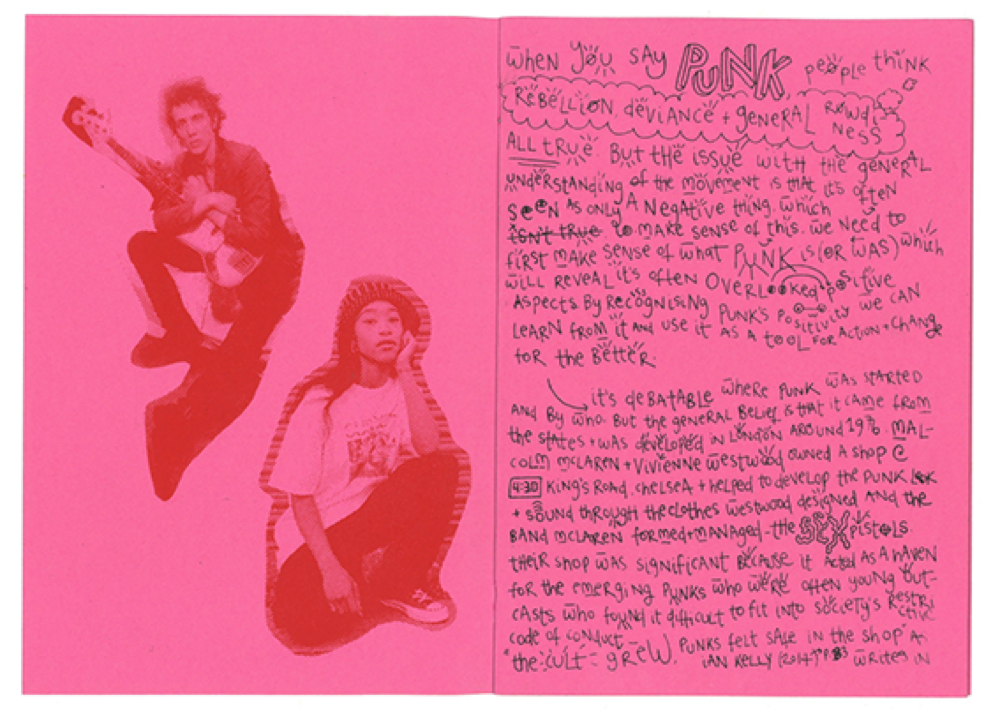 WHEN YOU SAY PUNK people think
REBELLION, deviANCE + geneRAL ROWDI
NESS
ALL tRUE. BUT tHE issue with the geneRAL
UNDERSTANDING of the MOVEMENT is tHAt it's ofteN
SEEN AS ONLY A NegAtive thing. which
isn't true. to MAKE SENSE of this. we Need to
first MAKE SENSE of what PUNK is (OR WAS) which
will REVEAL it's often OVERLOOKED positive
ASPects. By Recognising PUNK's positivity we CAN
LEARN from it AND use it AS A tOOL FOR ACTION + CHANGE
for the BETTER.
it's deBAtABLE WHERE PUNK WAS STARTED
AND BY WHO. BUt the geneRAL BELIEF is that it CAME FROM
the states + WAS developed IN LONDON AROUND 1976. MAL-
COLM MCLAREN + ViVIENNE Westwood owned A shop @
4:30 KING'S ROAD, CHELSEA + helped to develop the PUNK look
+ SOUND THROUGH the clothes westwood designed AND the
BAND MCLAREN FORMED + MANAGED - the SEX PISTOLS.
their shop WAS significANt BECAUSE it Acted AS A HAVEN
for the emerging PUNKS WHO WERE often young OUT-
CASTS WHO found it difficult to fit into society's RESTRI
CTIVE
code of conduct. PUNKS felt SAFE in the shop AS
"the cult" gREW. iAN KELLY (2014) P.83 writes IN